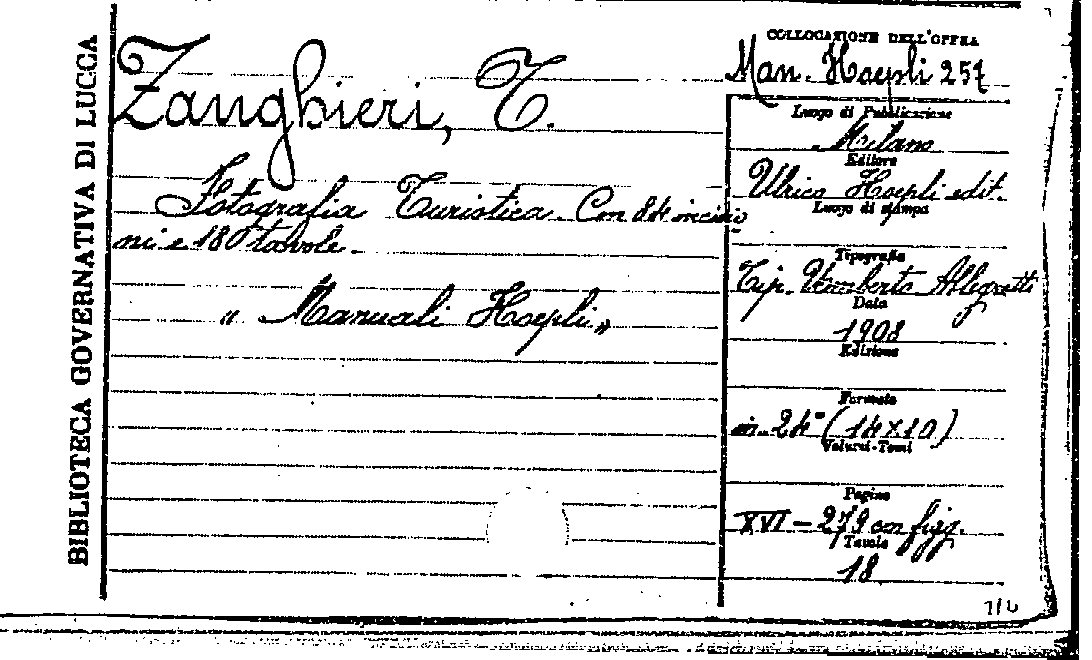 BIBLIOTECA GOVERNATIVA DI LUCCA
Zanghieri, T.
Fotografia Turistica. Con 84 incisio
ni e 180 tavole.
"Manuali Hoepli"
COLLOCAZIONE DELL'OPERA
Man. Hoepli 257
Luogo di Pubblicazione
Milano
Editore
Ulrico Hoepli edit.
Luogo di stampa
Tipografia
Tip. Umberto Allegretti
Data
1908
Edizione
Formato
in-24° (14x10)
Volumi-Tomi
Pagine
XVI - 279 con figg.
Tavole
18